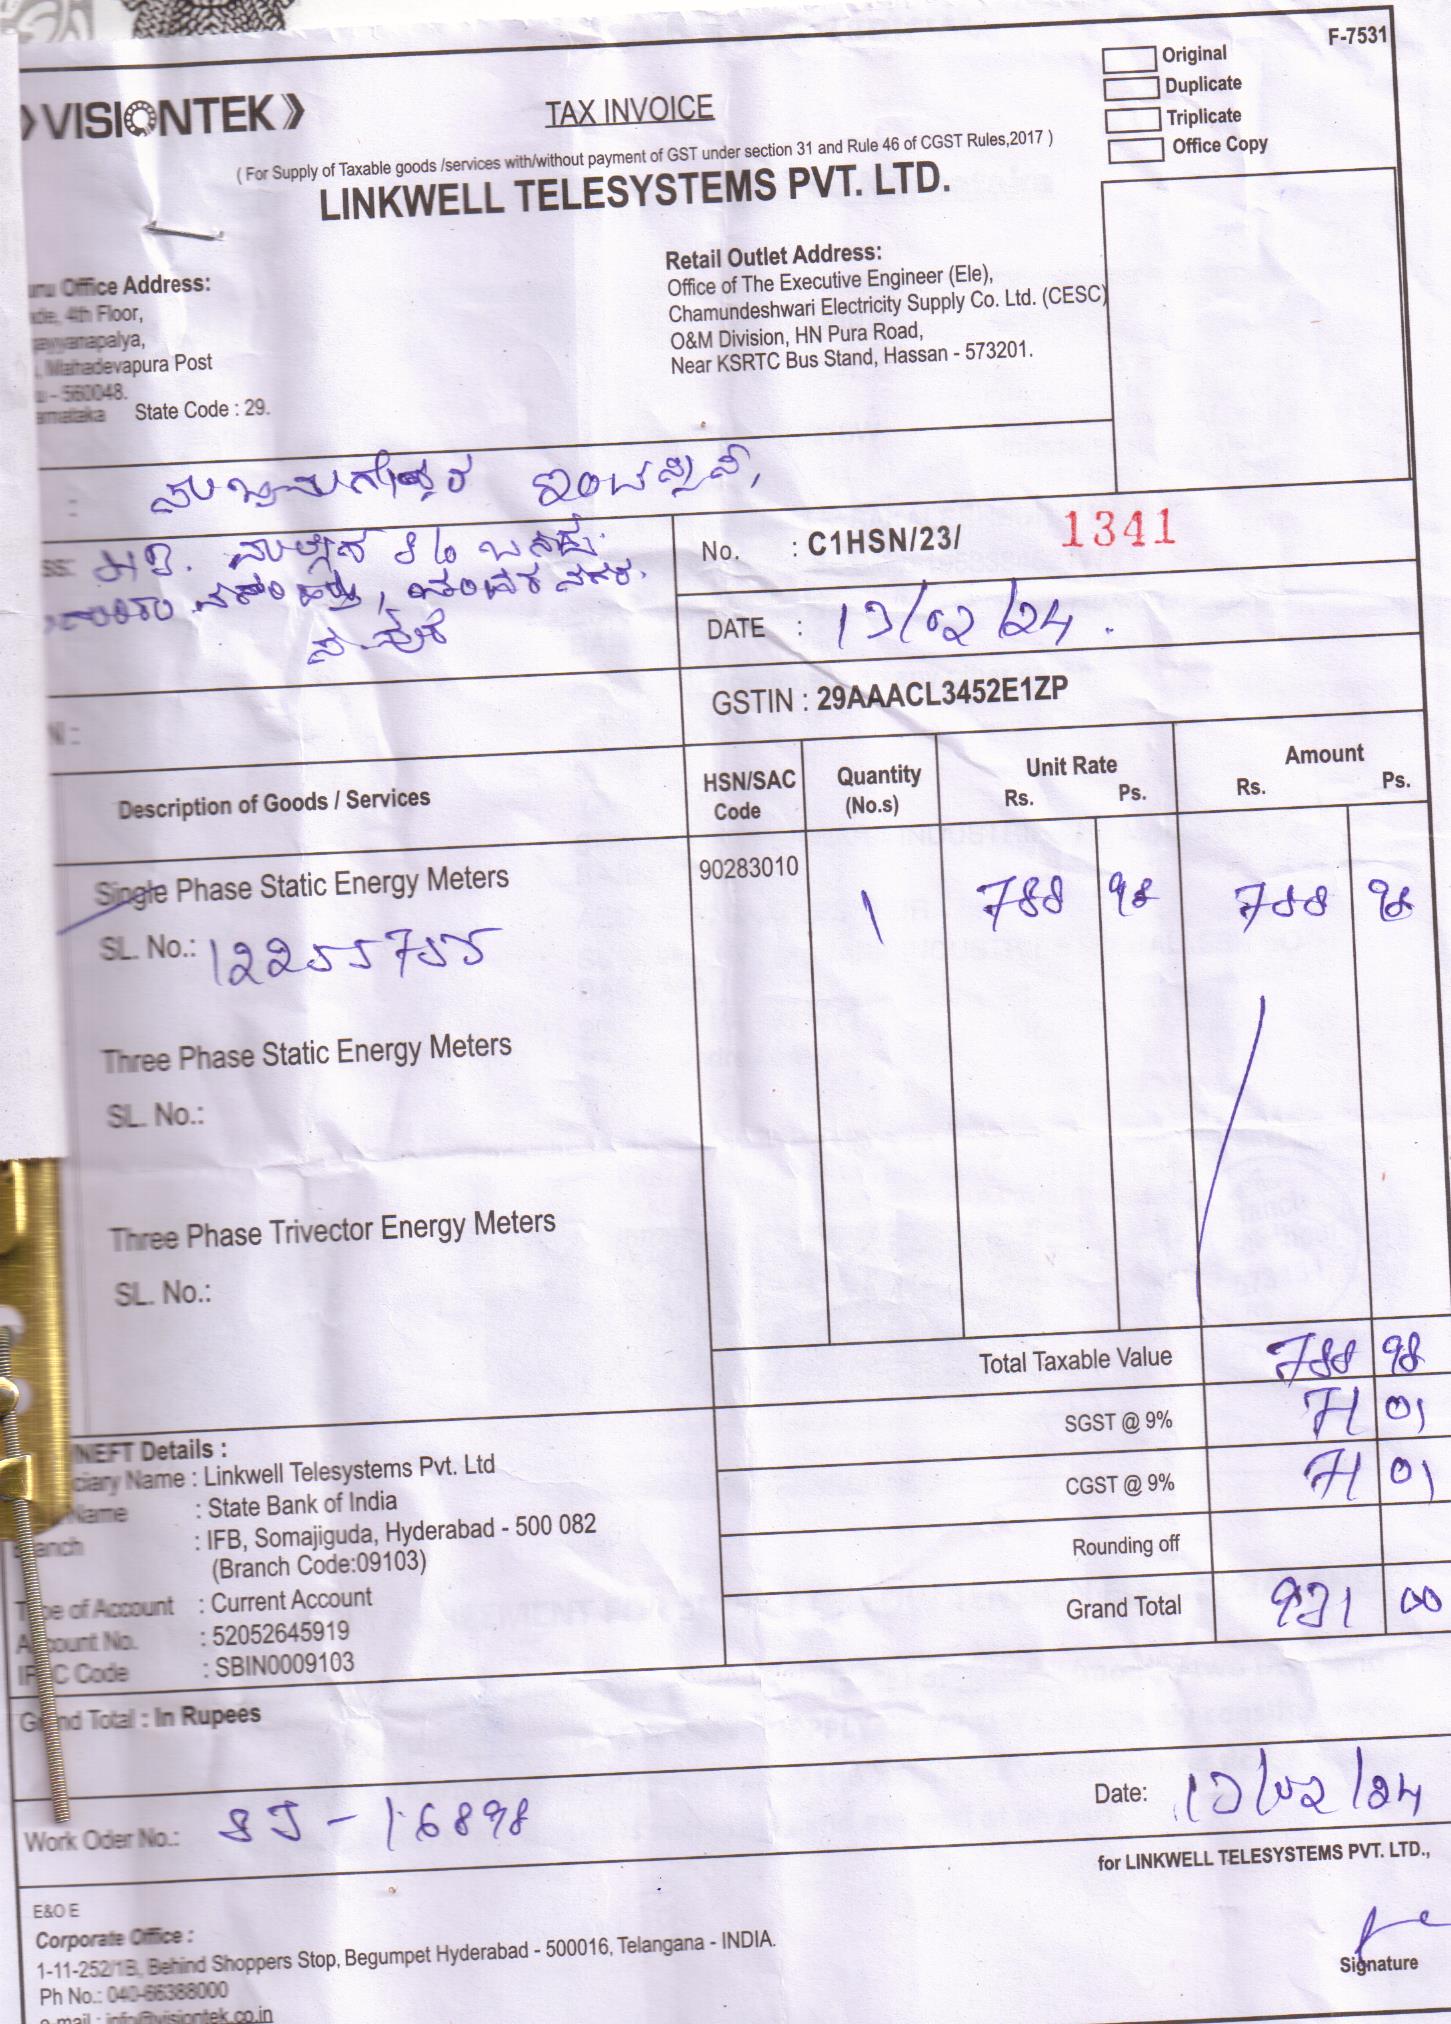 F-7531
Original
Duplicate
Triplicate
Office Copy
VISIONTEK
TAX INVOICE
( For Supply of Taxable goods /services with/without payment of GST under section 31 and Rule 46 of CGST Rules,2017 )
LINKWELL TELESYSTEMS PVT. LTD.
Office Address:
4th Floor,
Mahadevapura Post
- 560048.
State Code : 29.
Retail Outlet Address:
Office of The Executive Engineer (Ele),
Chamundeshwari Electricity Supply Co. Ltd. (CESC)
O&M Division, HN Pura Road,
Near KSRTC Bus Stand, Hassan - 573201.
No. : C1HSN/23/ 1341
DATE : 13/02/24.
GSTIN : 29AAACL3452E1ZP
Description of Goods / Services HSN/SAC Code Quantity (No.s) Unit Rate Rs. Ps. Amount Rs. Ps.
Single Phase Static Energy Meters 90283010 1 788 98 788 98
SL. No.: 12255755
Three Phase Static Energy Meters
SL. No.:
Three Phase Trivector Energy Meters
SL. No.:
Total Taxable Value 788 98
SGST @ 9% 71 01
CGST @ 9% 71 01
Rounding off
Grand Total 931 00
NEFT Details :
Name : Linkwell Telesystems Pvt. Ltd
Name : State Bank of India
: IFB, Somajiguda, Hyderabad - 500 082
(Branch Code:09103)
of Account : Current Account
No. : 52052645919
Code : SBIN0009103
Total : In Rupees
Work Oder No.: SJ - 16898
Date: 13/02/24
for LINKWELL TELESYSTEMS PVT. LTD.,
Signature
E&O E
Corporate Office :
1-11-252/1B, Behind Shoppers Stop, Begumpet Hyderabad - 500016, Telangana - INDIA.
Ph No.: 040-66388000
e-mail : info@visiontek.co.in